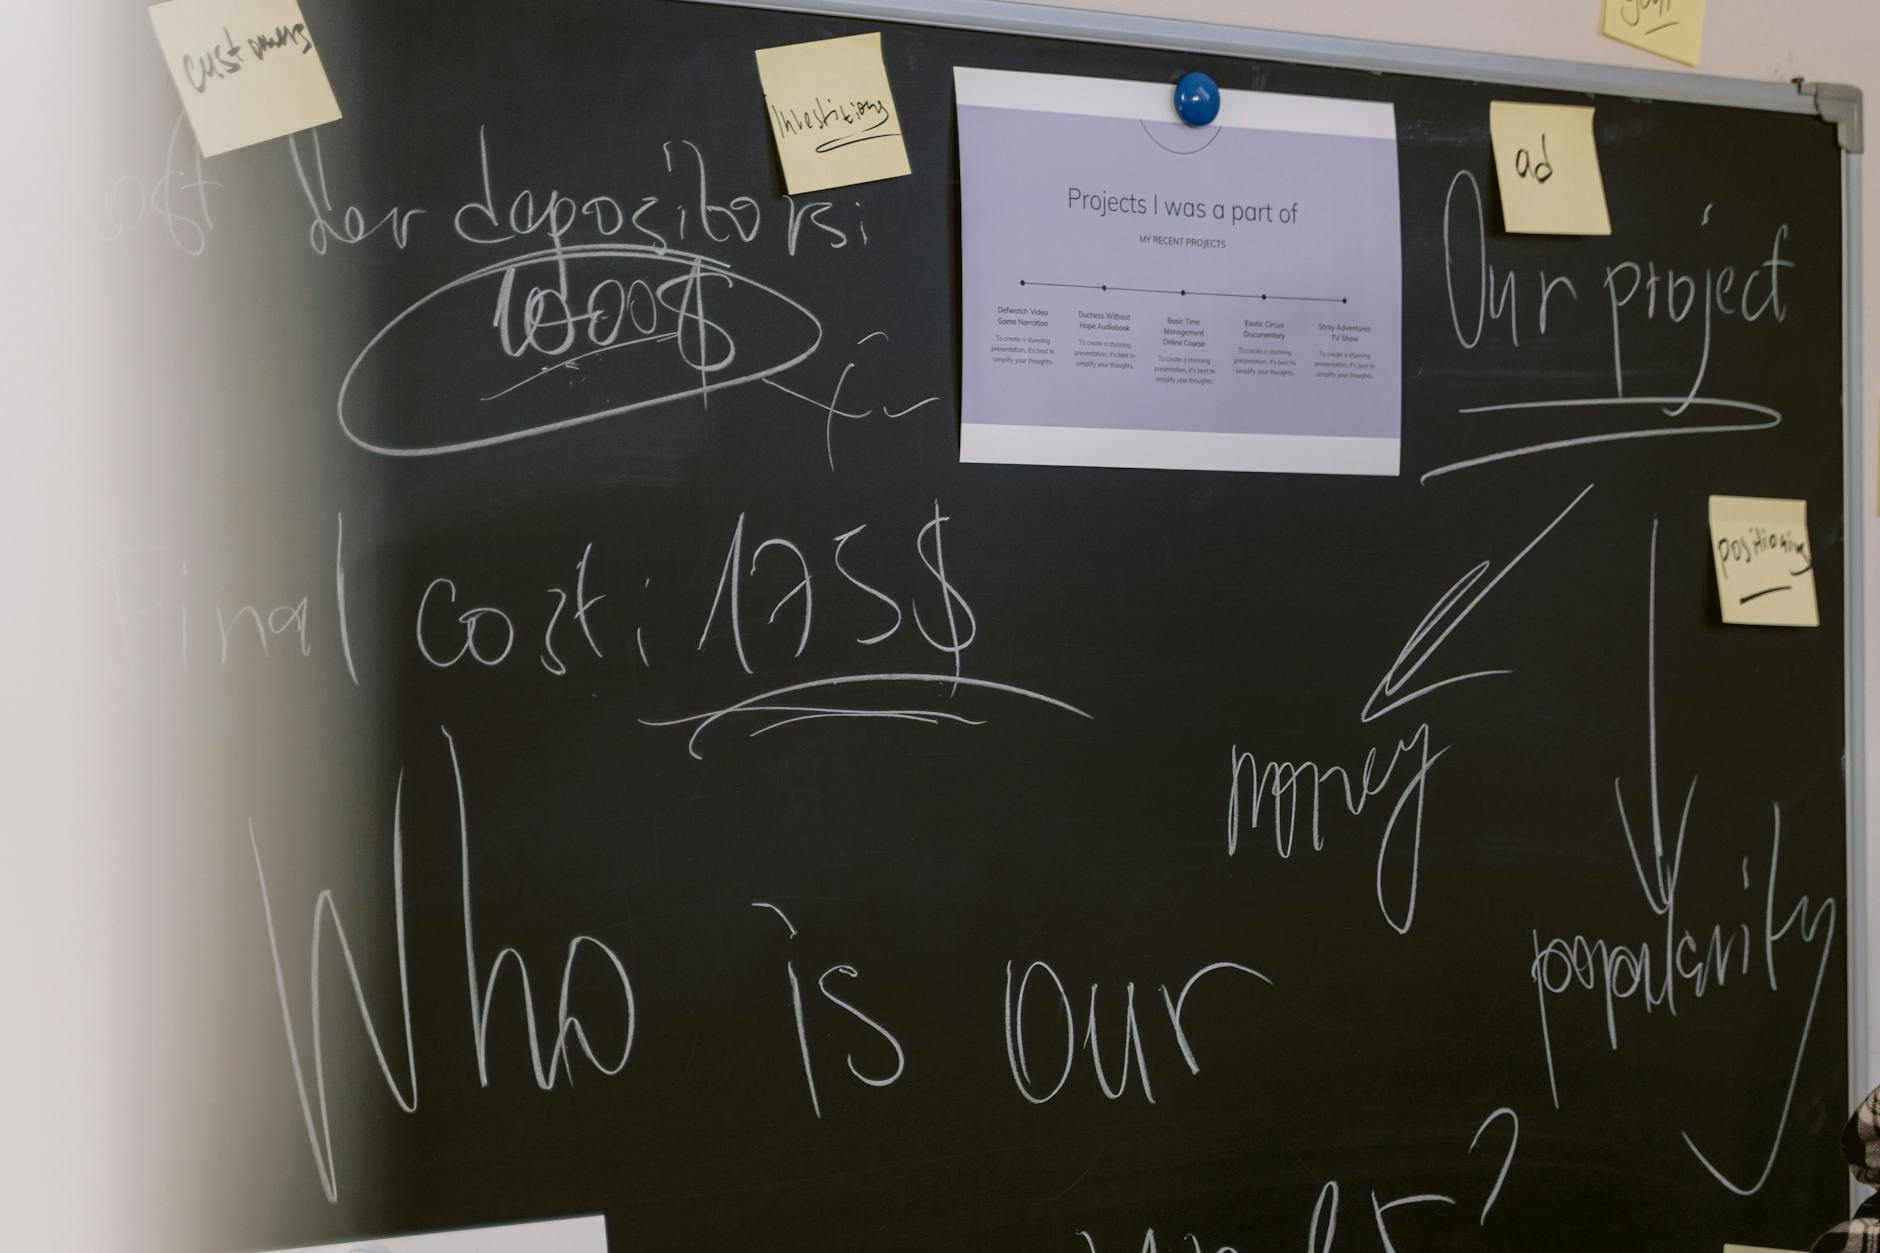 customers
Investitions
ad
der depositors:
1000$
Final cost: 175$
Who is our
Projects I was a part of
MY RECENT PROJECTS
Defwatch Video
Game Narration
To create a stunning
presentation, it's best to
simplify your thoughts.
Duchess Without
Hope Audiobook
To create a stunning
presentation, it's best to
simplify your thoughts.
Basic Time
Management
Online Course
To create a stunning
presentation, it's best to
simplify your thoughts.
Exotic Circus
Documentary
To create a stunning
presentation, it's best to
simplify your thoughts.
Stray Adventures
TV Show
To create a stunning
presentation, it's best to
simplify your thoughts.
Our project
positioning
money
popularity